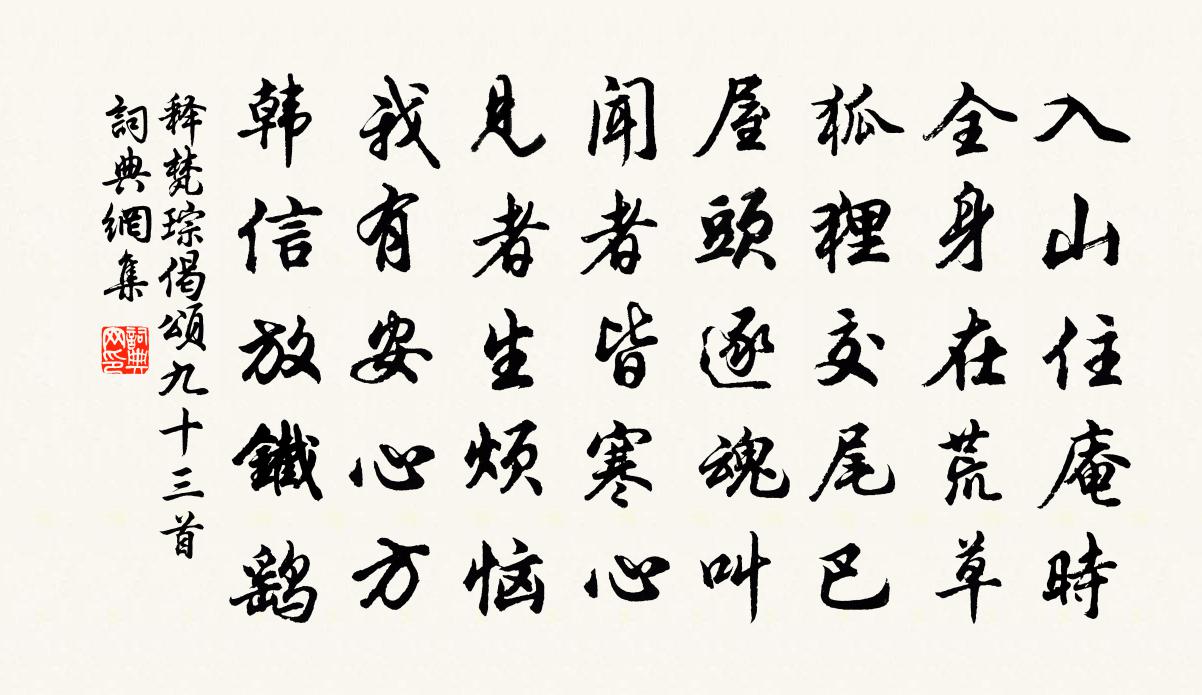 入山住庵時
全身在荒草
狐狸交尾巴
屋頭逐魂叫
闻者皆寒心
見者生烦恼
我有安心方
韩信放鐵鹞
释梵琮偈頌九十三首
詞典網集
詞典
网印